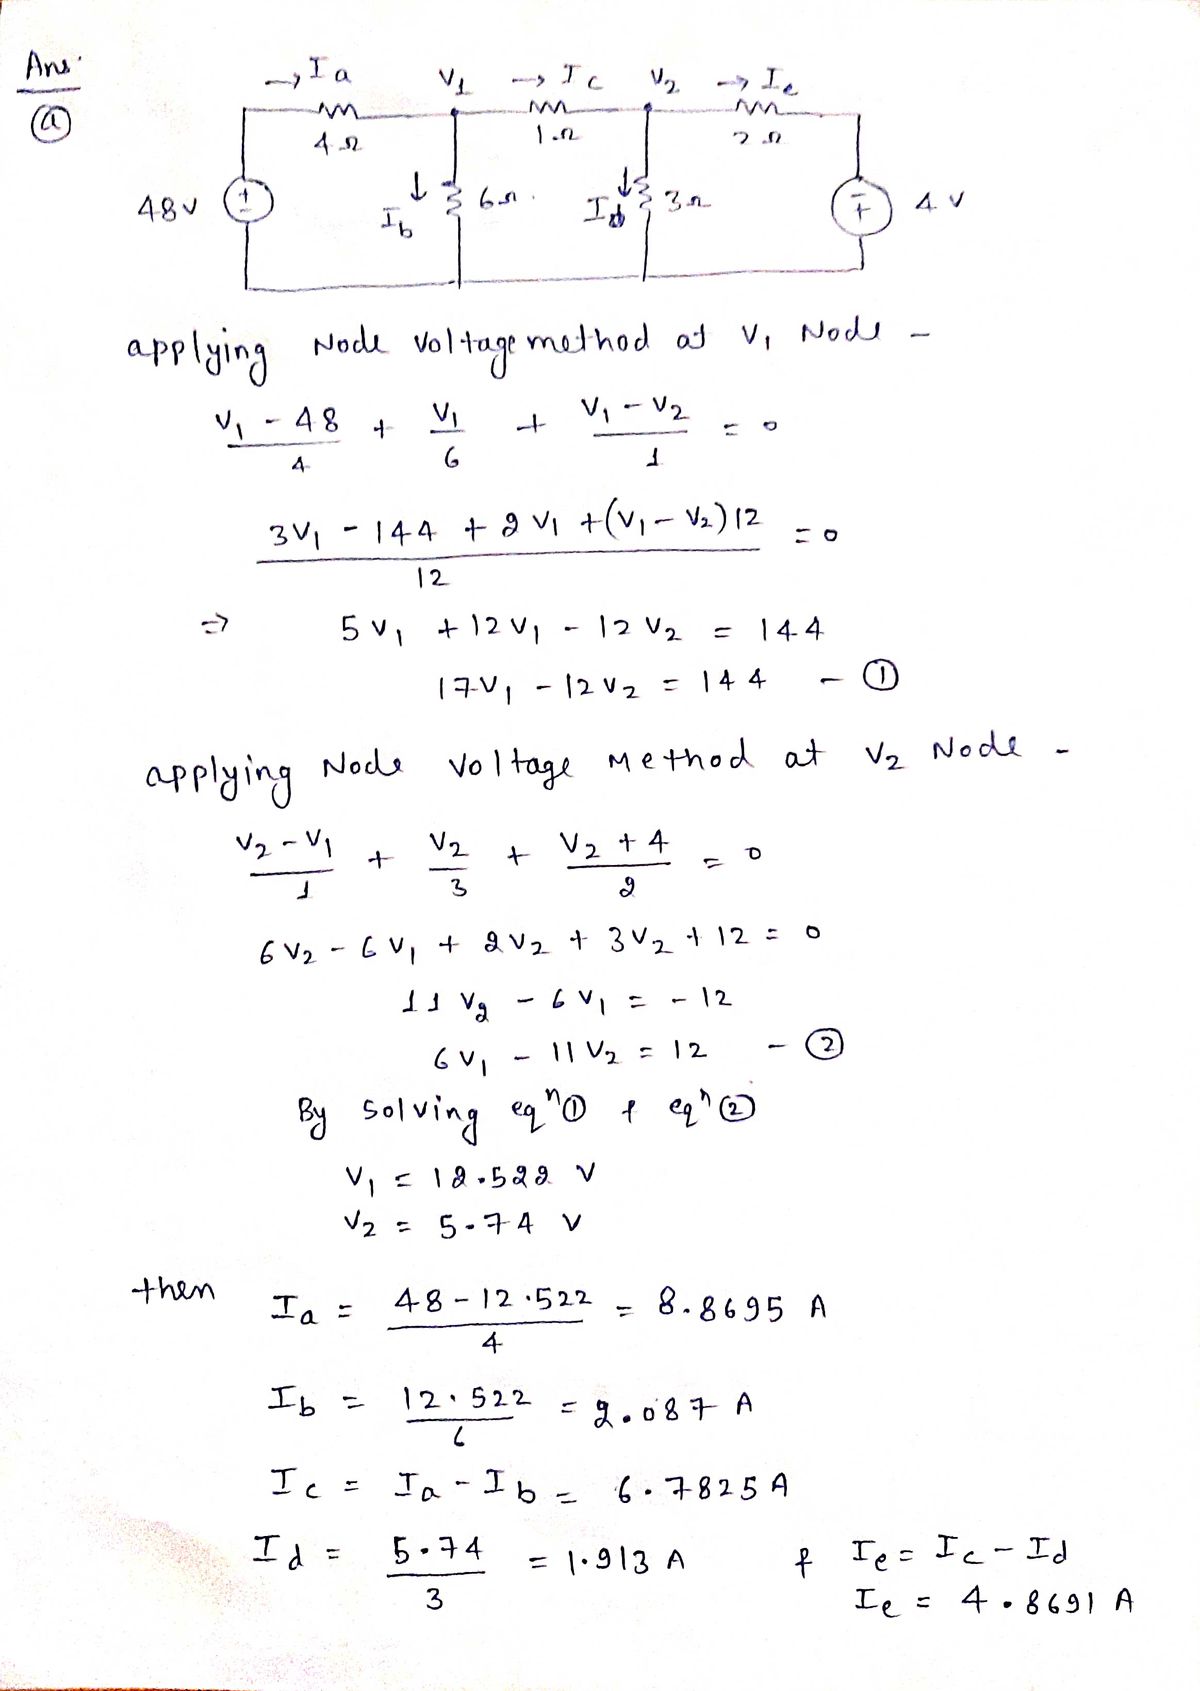 Ans.
(a)
→ Ia V1 → Ic V2 → Ie
4Ω 1Ω 2Ω
48V + - ↓ Ib 6Ω. ↓ Id 3Ω - + 4V
applying Node Voltage method at V1 Node -
(V1 - 48)/4 + V1/6 + (V1 - V2)/1 = 0
(3V1 - 144 + 2V1 + (V1 - V2)12)/12 = 0
⇒ 5V1 + 12V1 - 12V2 = 144
17V1 - 12V2 = 144 - ①
applying Node Voltage Method at V2 Node -
(V2 - V1)/1 + V2/3 + (V2 + 4)/2 = 0
6V2 - 6V1 + 2V2 + 3V2 + 12 = 0
11V2 - 6V1 = -12
6V1 - 11V2 = 12 - ②
By solving eqⁿ① & eqⁿ②
V1 = 12.522 V
V2 = 5.74 V
then Ia = (48 - 12.522)/4 = 8.8695 A
Ib = 12.522/6 = 2.087 A
Ic = Ia - Ib = 6.7825 A
Id = 5.74/3 = 1.913 A & Ie = Ic - Id
Ie = 4.8691 A